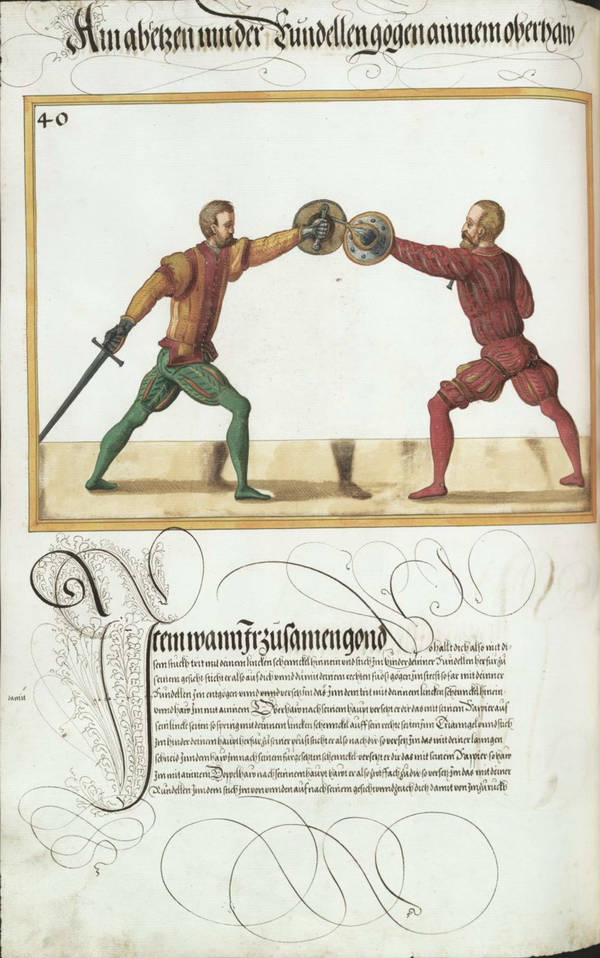 Ain absetzen mit der Rundellen gögen ainnem oberhaw
40
Item wann Ir zusamen gond so hallt dich also mit di-
sem stuckh trit mit deinem lincken schennckel hinnein und stich Im hinder deinner Rundellen herfür zu
seinem gesicht sticht er also auf dich unnd du mit deinem rechten fuoß gögen Im steest so far mit deinner
Rundellen Im entgögen unnd versetz Im das Inn dem trit mit deinnem lincken schennckel hinein
damit
unnd haw Im mit ainnem Oberhaw nach seinem haupt versetzt er dir das mit seinem Rappier auf
sein lincke seiten so spring mit deinnem lincken schennckel auff sein rechte seiten Inn Triangel unnd stich
Im hinder deinem haupt herfür zu seiner prust sticht er also nach dir so versetz Im das mit deiner lanngen
schneid Inn dem haw Im nach seinem fürgesetzten schennckel versetzt er dir das mit seinem Rappier so haw
Im mit ainnem Doppelhaw nach seinnem haupt hawt er also zuo dir so versetz Im das mit deiner
Rundellen Inn dem stich Im von unnden auf nach seinem gesicht unnd zeuch dich damit von Im zuruckh